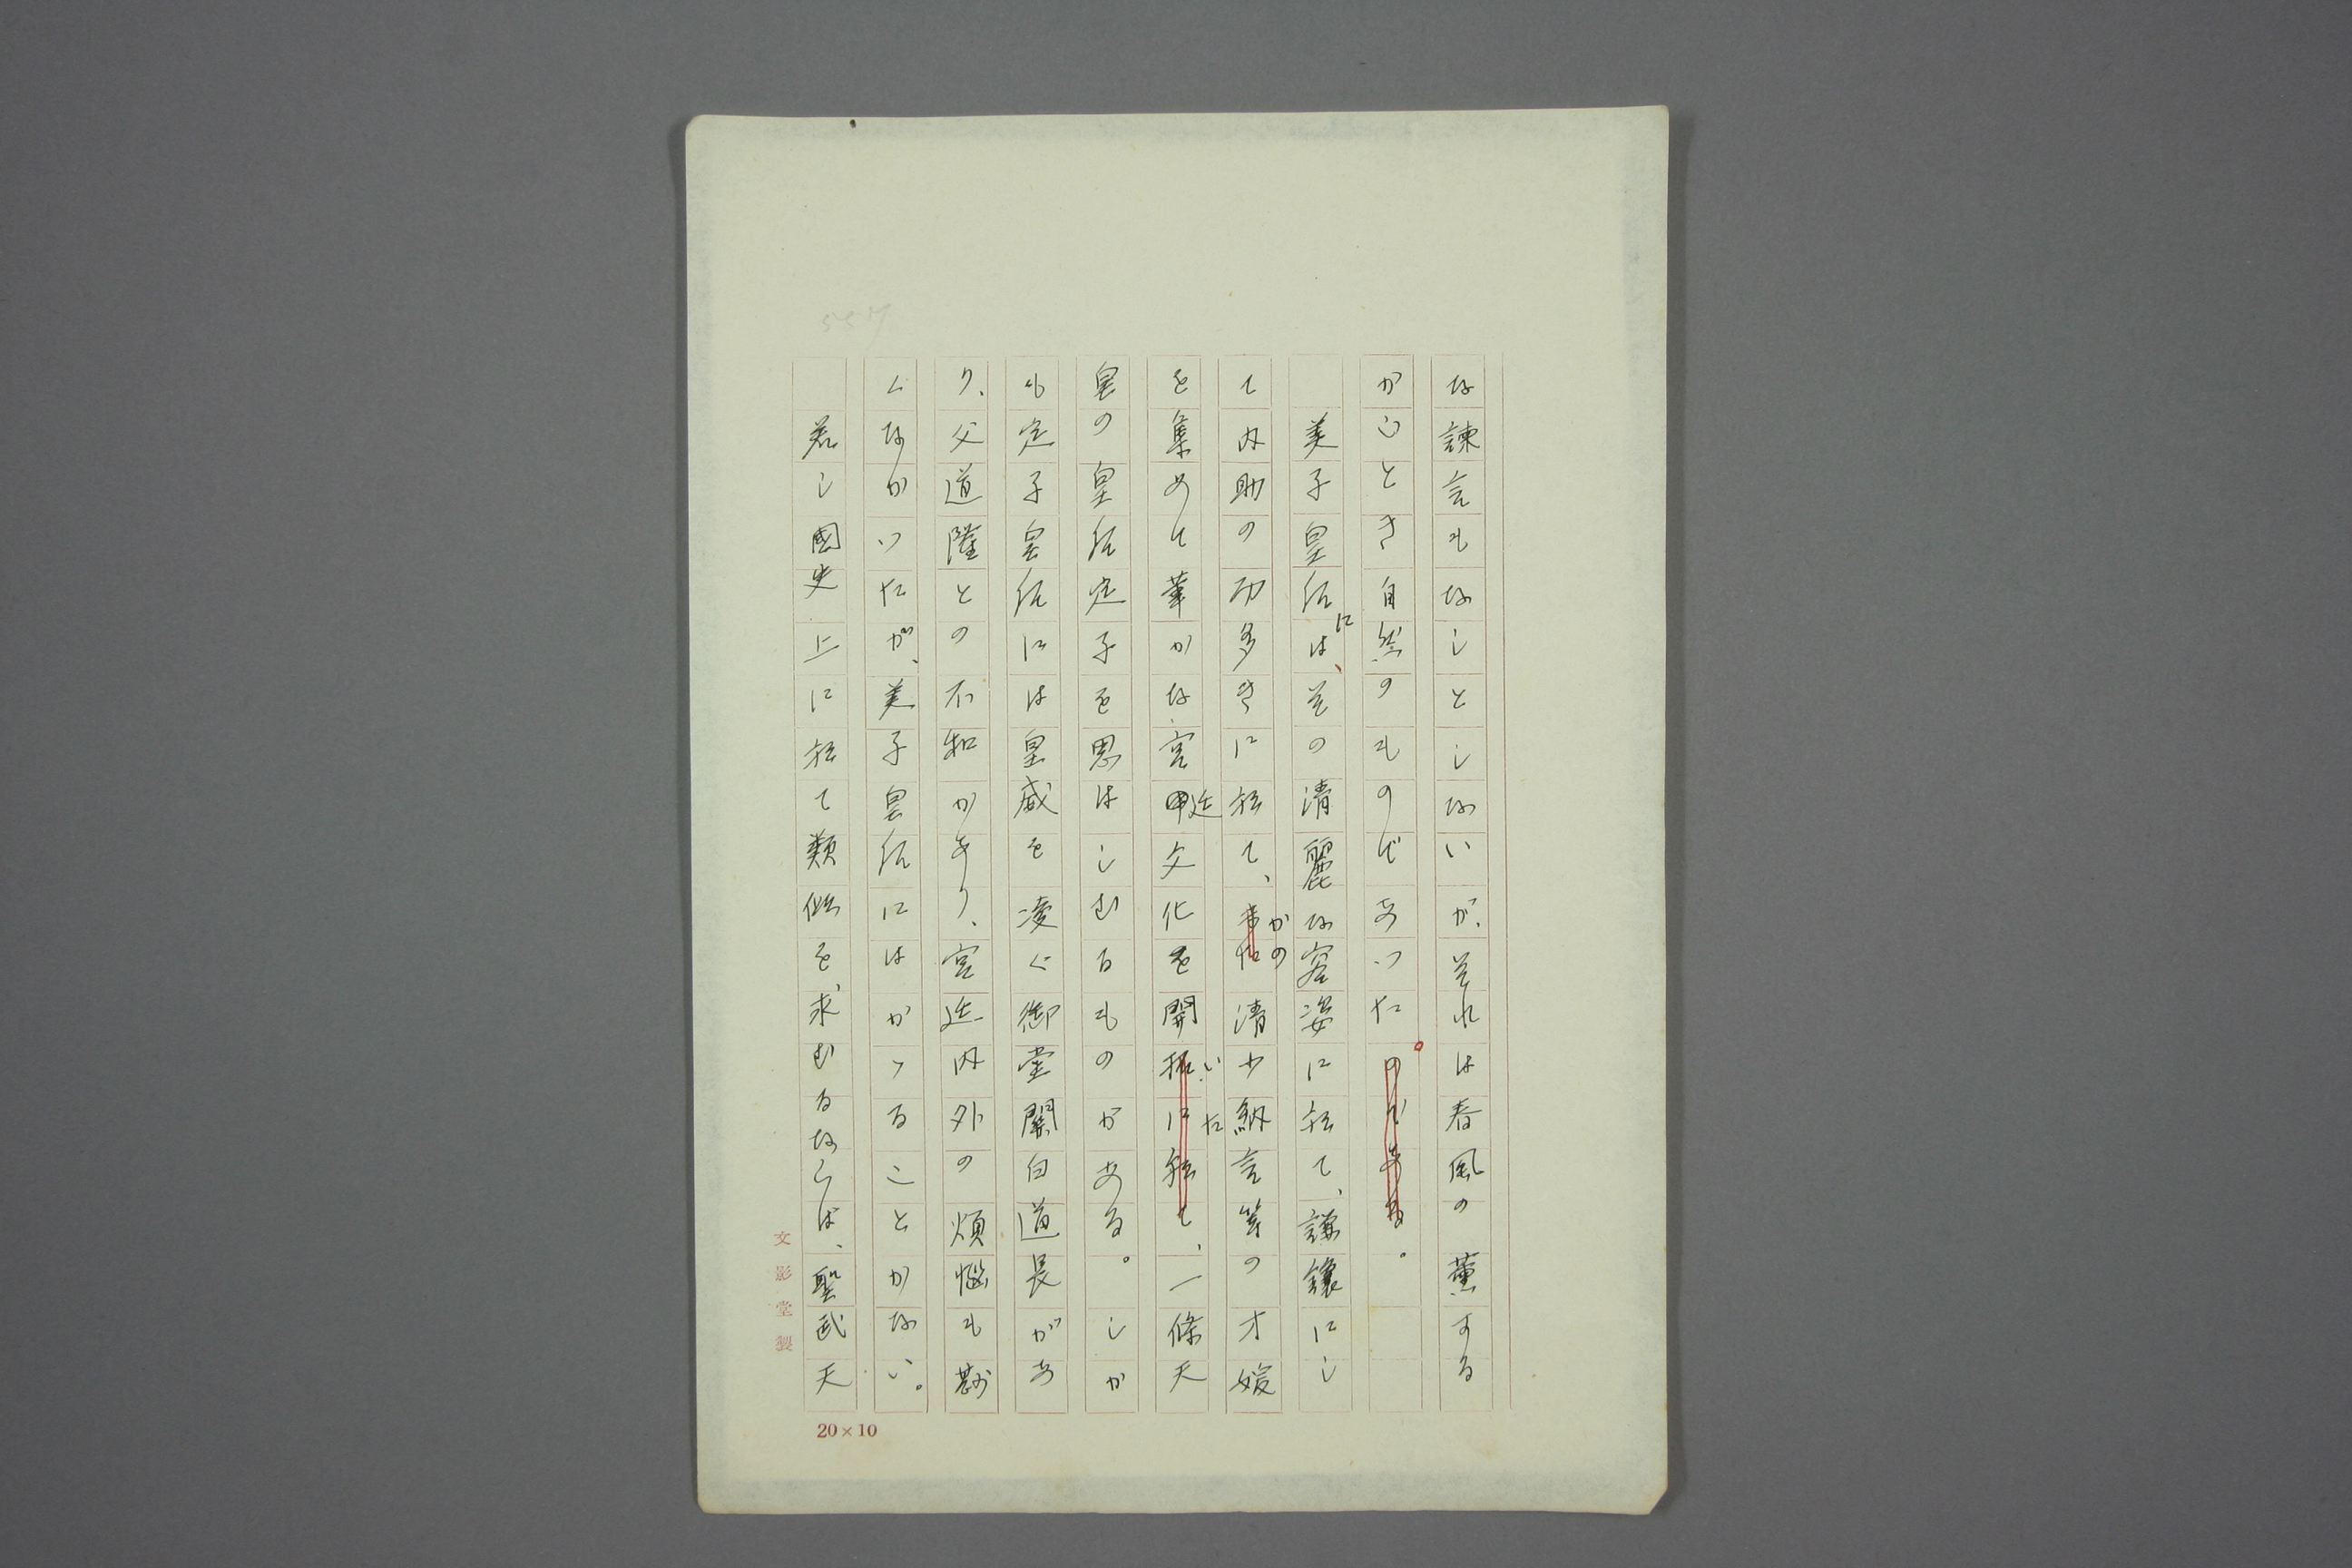 な諫言もなしとしないが、それは春風の薫する
が如とき自然のものであった。のである。
美子皇后には、その清麗な容姿に於て、謙讓にし
て内助の功多きに於て、かの清少納言等の才媛
を集めて華かな宮廷文化を開拓いたに於て、一條天
皇の皇后定子を思はしむるものがある。しか
も定子皇后には皇威を凌ぐ御堂関白道長があ
り、父道隆との不和があり、宮廷内外の煩悩も尠
くなかつたが、美子皇后にはかゝることがない。
若し國史上に於て類似を求むるならば、聖武天
文影堂製
20×10